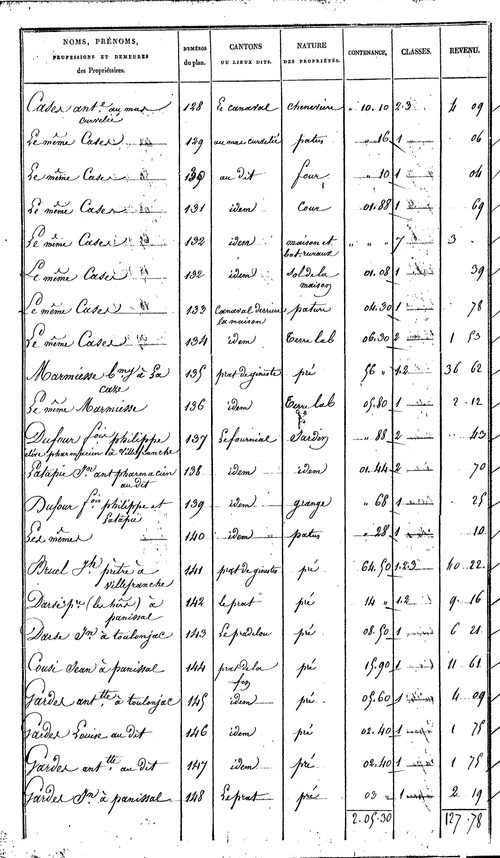 NOMS, PRÉNOMS, PROFESSIONS ET DEMEURES des Propriétaires. | NUMÉROS du plan. | CANTONS OU LIEUX DITS. | NATURE DES PROPRIÉTÉS. | CONTENANCE. | CLASSES. | REVENU.
Cases ant.e au mas curvelié 128 Le canaval chenevière " 10.10 2.3 4 09
Le même Cases 129 au mas curvelié patus " 16 1 06
Le même Cases 130 au dit four " 10 1 04
Le même Cases 131 idem Cour 01.88 1 69
Le même Cases 132 idem maison et bat. ruraux " " " 7 3 "
Le même Cases 132 idem sol de la maison 01.08 1 39
Le même Cases 133 Canaval derrière la maison pature 04.30 1 78
Le même Cases 134 idem Terre lab 06.30 2 1 53
Marmiesse b.my à La caze 135 prat de gineste pré 56 " 1.2 36 62
Le même Marmiesse 136 idem Terre lab 05.80 1 2.12
Dufour f.ois philippe élève pharmacien à Villefranche 137 Le fournial Jardin " 88 2 43
Latapie J.n ant pharmacien au dit 138 idem idem 01.44 2 70
Dufour f.ois philippe et Latapie 139 idem grange " 68 1 25
Les mêmes 140 idem patus " 28 1 10
Bruel J.ph prètre à Villefranche 141 prat de ginestes pré 64.50 1.2.3 40.22
Darse p.re (les hérs) à panissal 142 le prat pré 14 " 1.2 9.16
Darse J.n à toulonjac 143 Le pradelou pré 08.50 1 6 21
Cousi Jean à panissal 144 prat de la fon pré 15.90 1 11 61
Gardes ant.tte à toulonjac 145 idem pré 05.60 1 4.09
Gardes Louise au dit 146 idem pré 02.40 1 1 75
Gardes ant.tte au dit 147 idem pré 02.40 1 1 75
Gardes J.n à panissal 148 Le prat pré 03 " 1 2 19
2.05.30 127.78